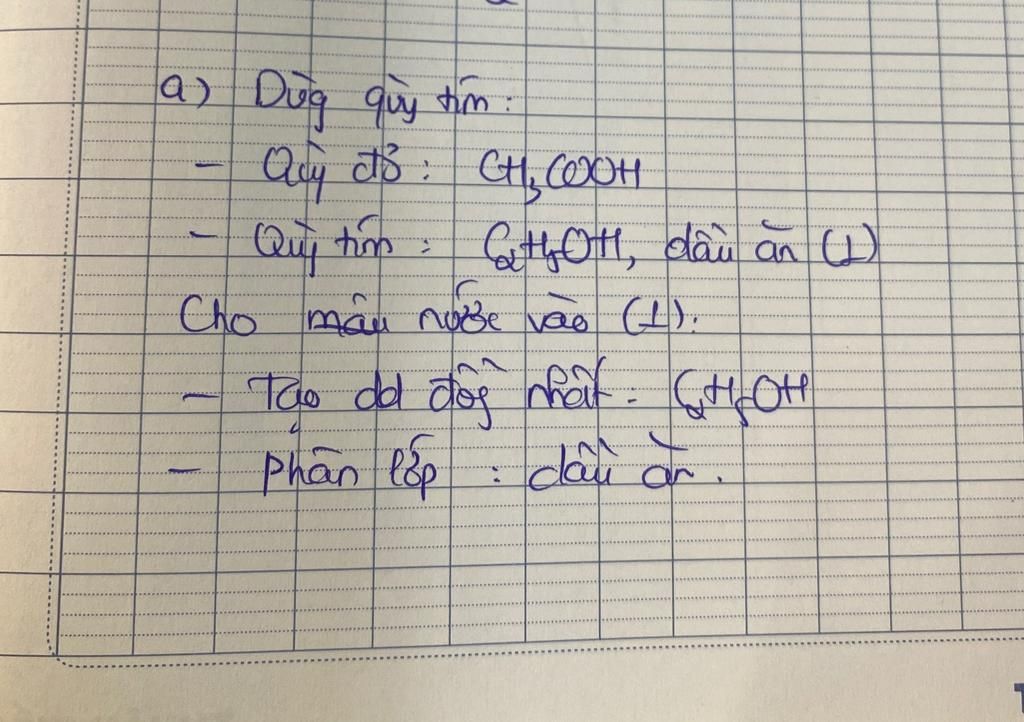 a) Dùg quỳ tím:
- Quỳ đỏ: CH₃COOH
- Quỳ tím: C₂H₅OH, dầu ăn (1)
Cho mẫu nước vào (1).
- Tạo dd đồg nhất: C₂H₅OH
- Phân lớp: dầu ăn.